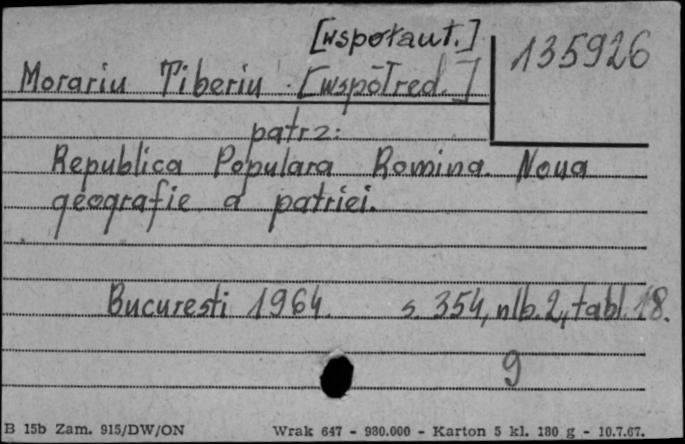 [współaut.]
135926
Morariu Tiberiu [współred.]
patrz:
Republica Populara Romina. Noua
geografie a patriei.
Bucuresti 1964. s. 354, nlb. 2, tabl. 18.
9
B 15b Zam. 915/DW/ON Wrak 647 - 980.000 - Karton 5 kl. 180 g - 10.7.67.